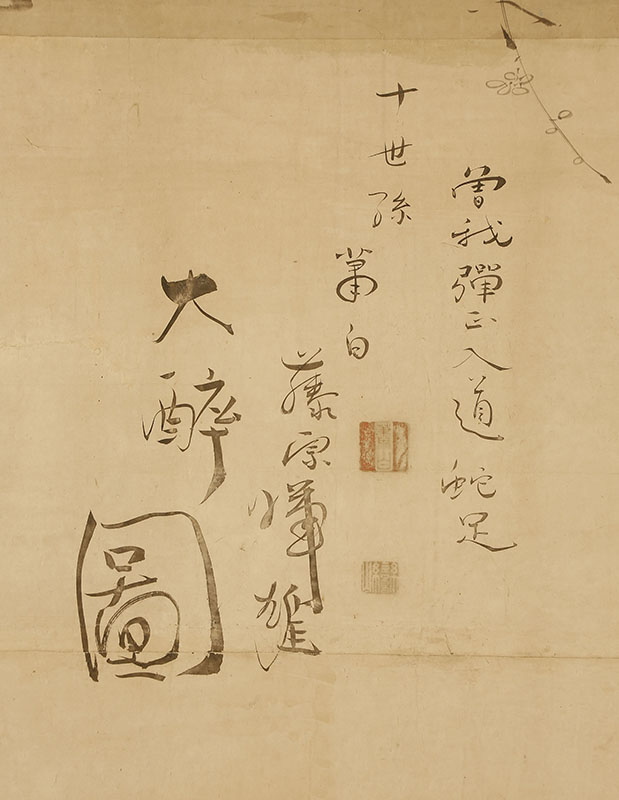 曽我彈正入道蛇足
十世孫
蕭白
藤原暉雄
大醉圖